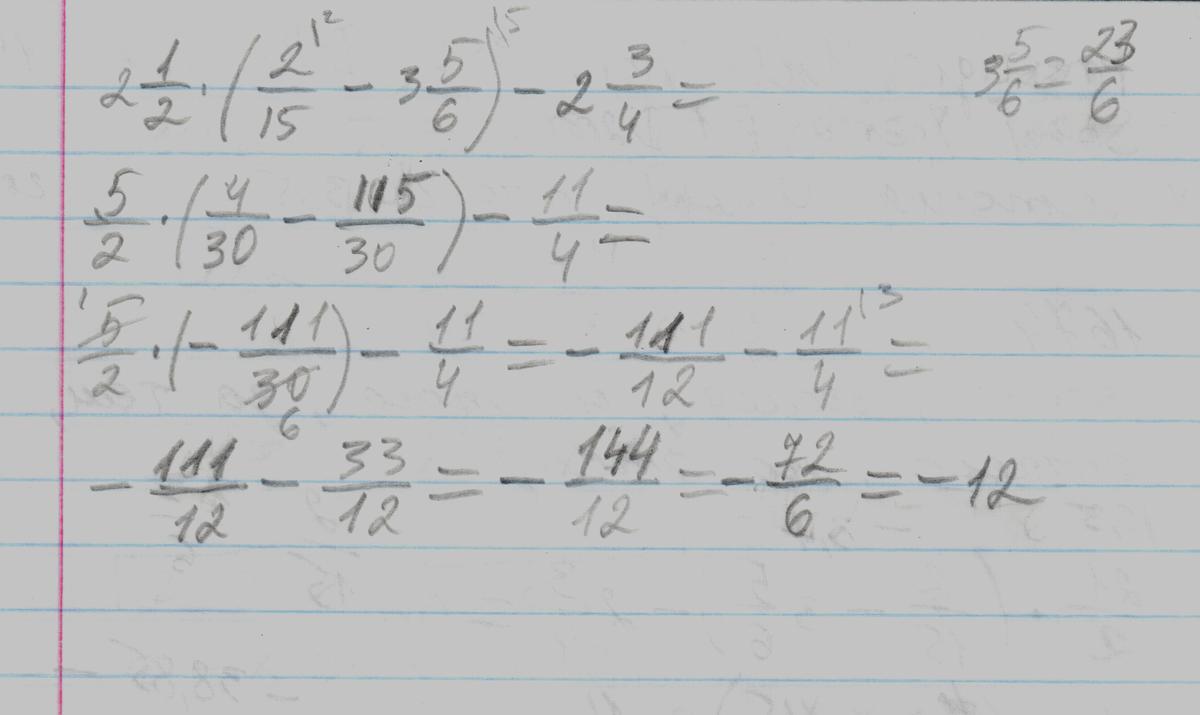 2 1/2 · (2/15 |2 - 3 5/6)|5 - 2 3/4 = 3 5/6 = 23/6
5/2 · (4/30 - 115/30) - 11/4 =
1 5/2 · (- 111/30 6) - 11/4 = - 111/12 - 11/4 |3 =
- 111/12 - 33/12 = - 144/12 = - 72/6 = - 12